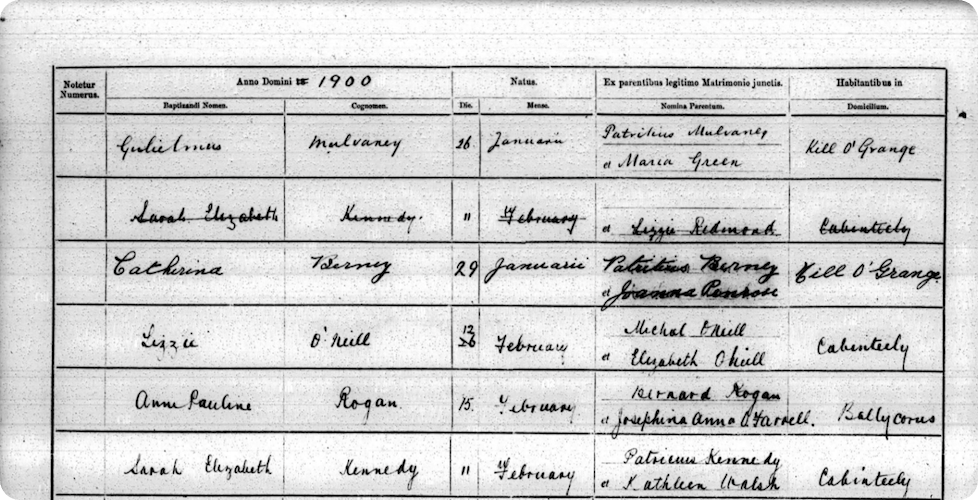 Notetur Numerus. Anno Domini 1900 Natus. Ex parentibus legitimo Matrimonio junctis. Habitantibus in
Baptizandi Nomen. Cognomen. Die. Mense. Nomina Parentum. Domicilium.
Gulielmus Mulvaney 26 Januarii Patritius Mulvaney Kill O'Grange
et Maria Green
Sarah Elizabeth Kennedy. 11 February
et Lizzie Redmond Cabinteely
Catherina Berney 29 Januarii Patritius Berney Kill O'Grange
et Joanna Penrose
Lizzie O'Neill 12 February Michal O'Neill Cabinteely
26 et Elizabeth O'Neill
Anne Pauline Rogan. 15. February Bernard Rogan Ballycorus
et Josephina Anna O'Farrell.
Sarah Elizabeth Kennedy 11 February Patricius Kennedy Cabinteely
et Kathleen Walsh